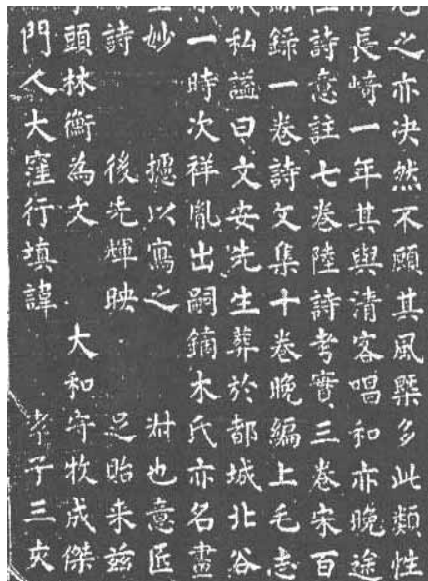 之亦决然不顧其風槩多此類性
長崎一年其與清客唱和亦晚途
詩意註七卷陸詩考實三卷宋百
錄一卷詩文集十卷晚編上毛志
私謚曰文安先生葬於都城北谷
一時次祥胤出嗣鏑木氏亦名畫
妙 以寫之 也意匠
詩 後先輝映 足貽来茲
頭林衡為文 大和守牧成傑
門人大窪行填諱 孝子三